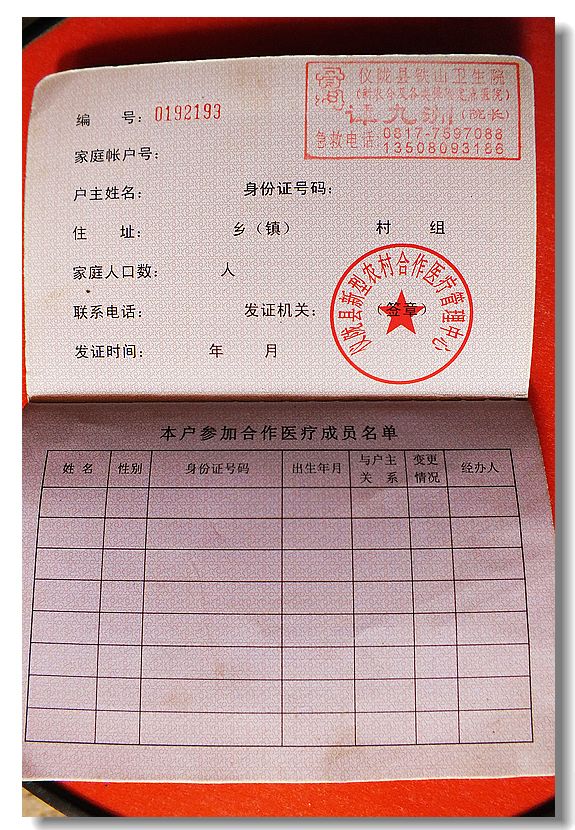 仪陇县铁山卫生院
(新农合及各类保险定点医院)
谭九洲(院长)
急救电话 0817-7597088
13508093186
编 号: 0192193
家庭帐户号:
户主姓名: 身份证号码:
住 址: 乡(镇) 村 组
家庭人口数: 人
联系电话: 发证机关: (签章)
仪陇县新型农村合作医疗管理中心
发证时间: 年 月
本户参加合作医疗成员名单
姓 名 性别 身份证号码 出生年月 与户主关 系 变更情况 经办人